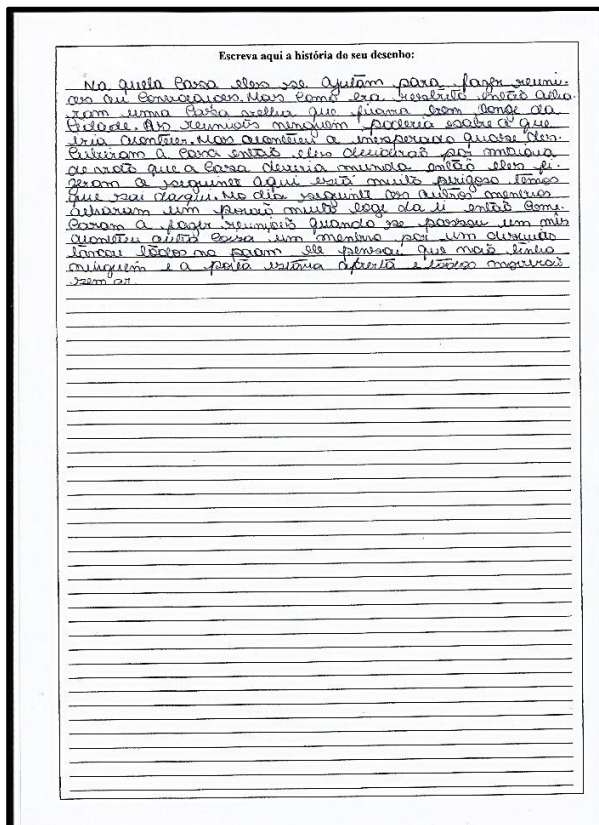 Escreva aqui a história do seu desenho:
Na quela Casa eles se ajutam para fazer reuni-
ões ou Convocações. Mas Como era
ram uma Casa velha que ficava bem longe da
Cidade. As reuniões ninguém poderia sabre o que
iria acontecer. Mas aconteceu o inesperado quase des-
Cubriram a Casa então eles decidirão por maioria
de voto que a Casa deveria então eles fi-
zeram o seguinte aqui está muito perigoso temos
que sai daqui. No dia seguinte os outros meninos
acharam um porão muito loge da li então Come-
Caram a fazer reuniões quando se passou um mês
aconteceu Coisa um menino por um discuido
todos no ele pensou que não tinha
ninguem e a porta estava aberta e todos morrerão
sem ar.